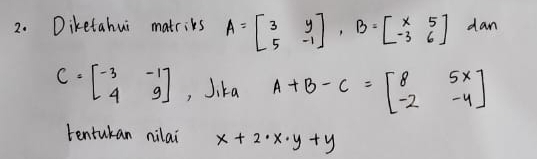 2. Diketahui matriks A = [3 y; 5 -1], B = [x 5; -3 6] dan
C = [-3 -1; 4 9], Jika A + B - C = [8 5x; -2 -4]
tentukan nilai x + 2 • x • y + y